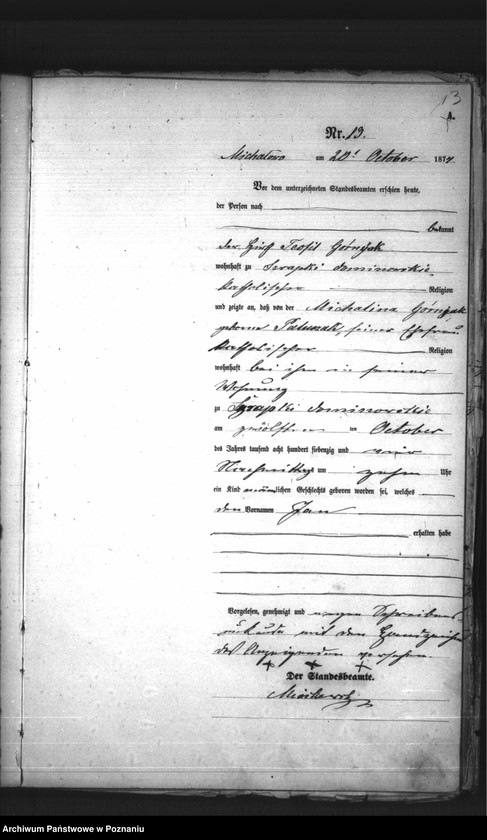 13
A.
Nr. 13.
Michalowo am 20t October 1874
Vor dem unterzeichneten Standesbeamten erschien heute,
der Person nach
bekannt
der Teofil Górnyak
wohnhaft zu dominowskie
katholischer Religion
und zeigte an, daß von der Michalina Górnyak
geborene seiner Ehefrau
katholischer Religion
wohnhaft bei ihm in seiner
Wohnung
zu dominowskie
am zwölften October
des Jahres tausend acht hundert siebenzig und vier
Nachmittags um zehn Uhr
ein Kind männlichen Geschlechts geboren worden sei, welches
den Vornamen Jan
erhalten habe
Vorgelesen, genehmigt und wegen Schreibens-
unkunde mit den Handzeichen
des Anzeigenden versehen.
+ + +
Der Standesbeamte.
Archiwum Państwowe w Poznaniu